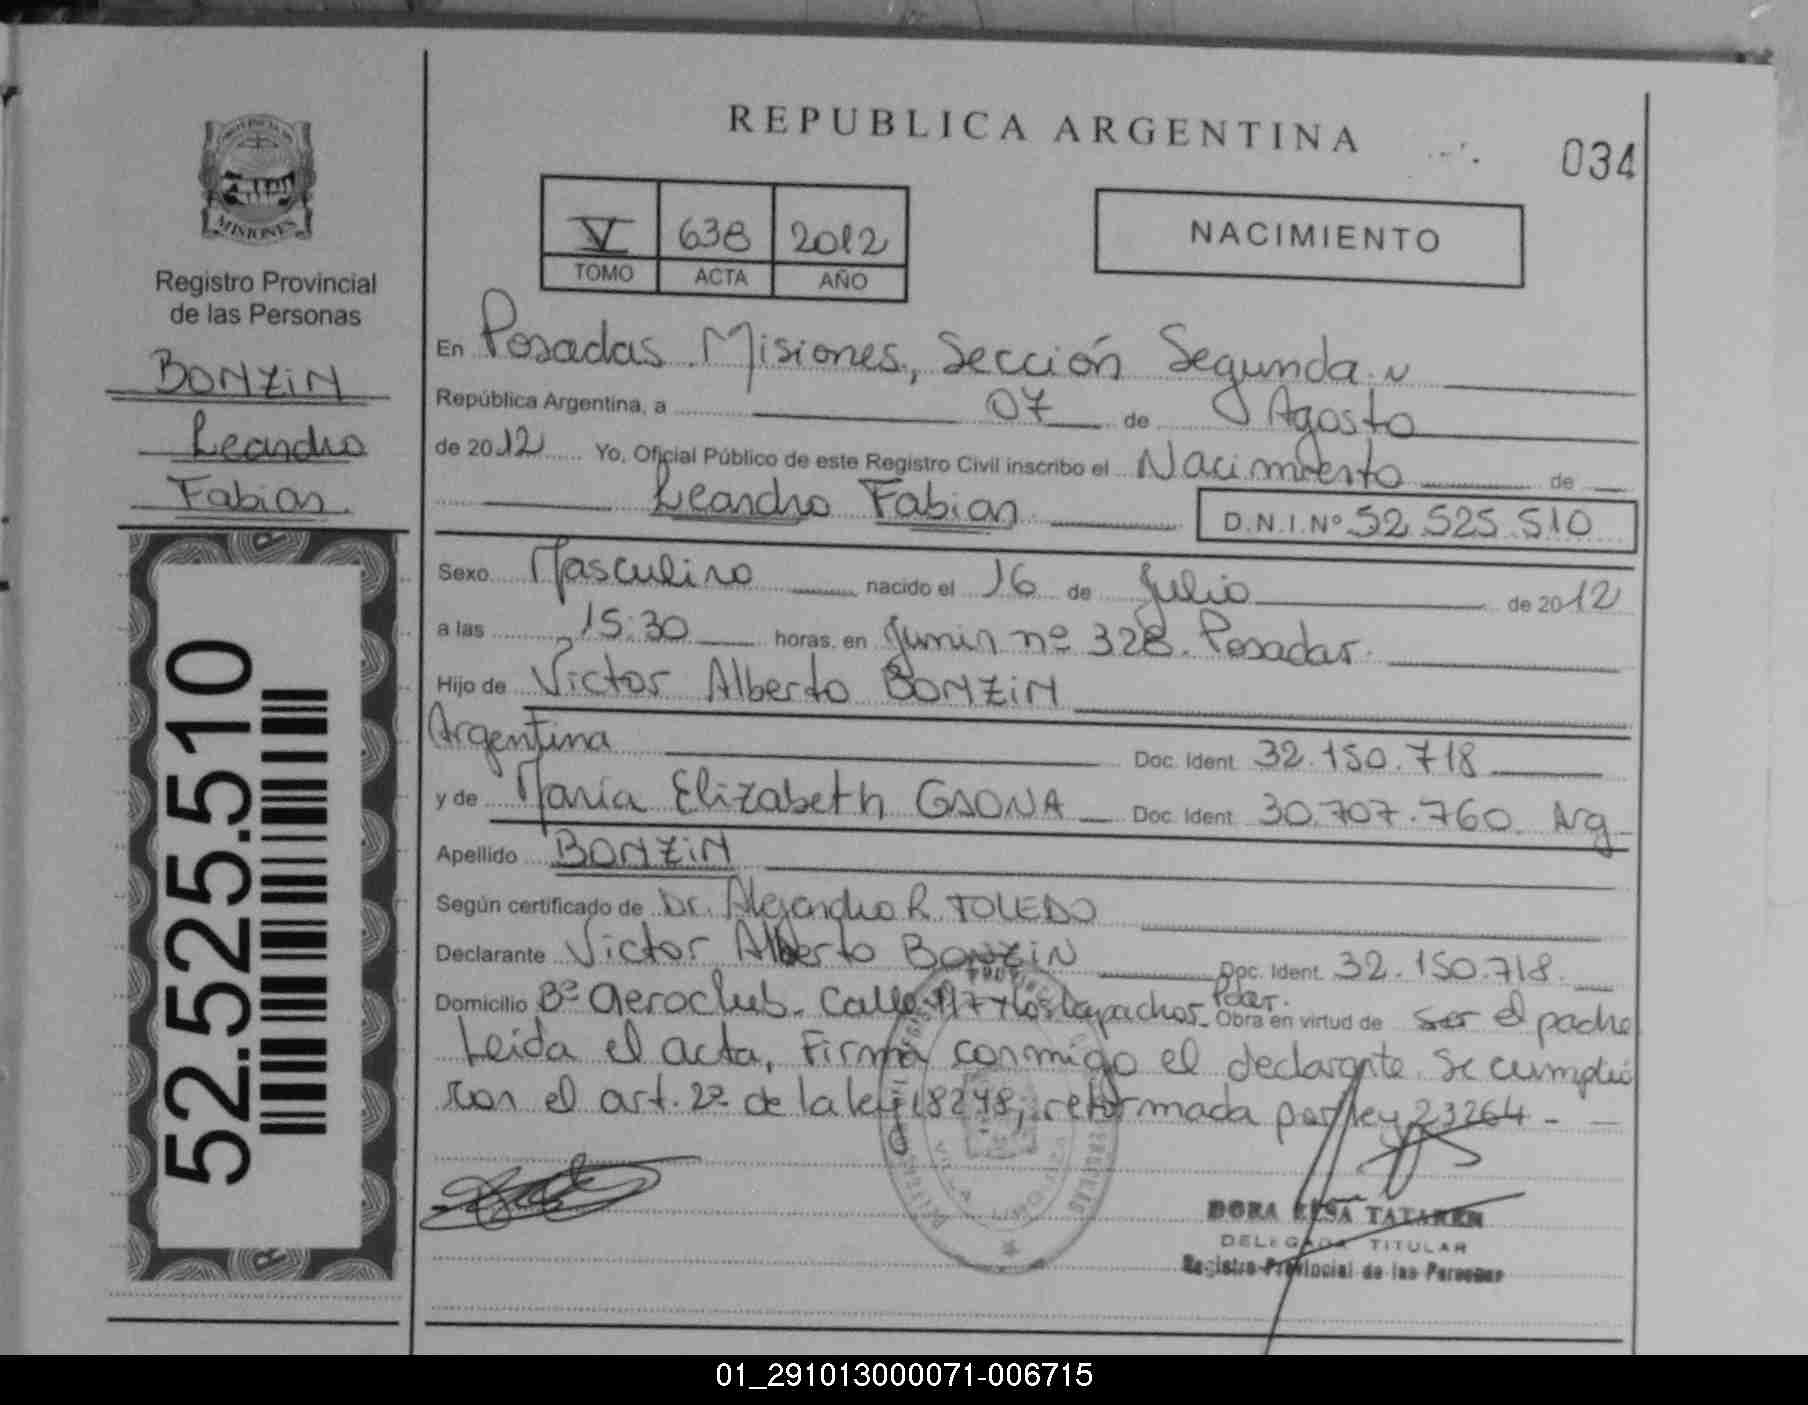 PROVINCIA DE
MISIONES
Registro Provincial
de las Personas
BONZIN
Leandro
Fabian.
52.525.510
REPUBLICA ARGENTINA
034
V 638 2012
TOMO ACTA AÑO
NACIMIENTO
En Posadas Misiones, Sección Segunda
República Argentina, a 07 de Agosto
de 2012 Yo, Oficial Público de este Registro Civil inscribo el Nacimiento de
Leandro Fabian D.N.I.Nº 52.525.510
Sexo Masculino nacido el 16 de Julio de 2012
a las 15:30 horas, en Junin nº 328. Posadas.
Hijo de Victor Alberto BONZIN
Argentina Doc. Ident. 32.150.718
y de Maria Elizabeth GAONA Doc. Ident. 30.707.760 Arg
Apellido BONZIN
Según certificado de Dr. Alejandro R. TOLEDO
Declarante Victor Alberto BONZIN Doc. Ident. 32.150.718.
Domicilio Bº aeroclub. Calle 117 y los lapachos. Pdas. Obra en virtud de ser el padre
Leida el acta, Firma conmigo el declarante. Se cumplió
con el art. 2º de la ley 18248, reformada por ley 23264 -
DORA ELSA TATAREN
DELEGADA TITULAR
Registro Provincial de las Personas
01_291013000071-006715